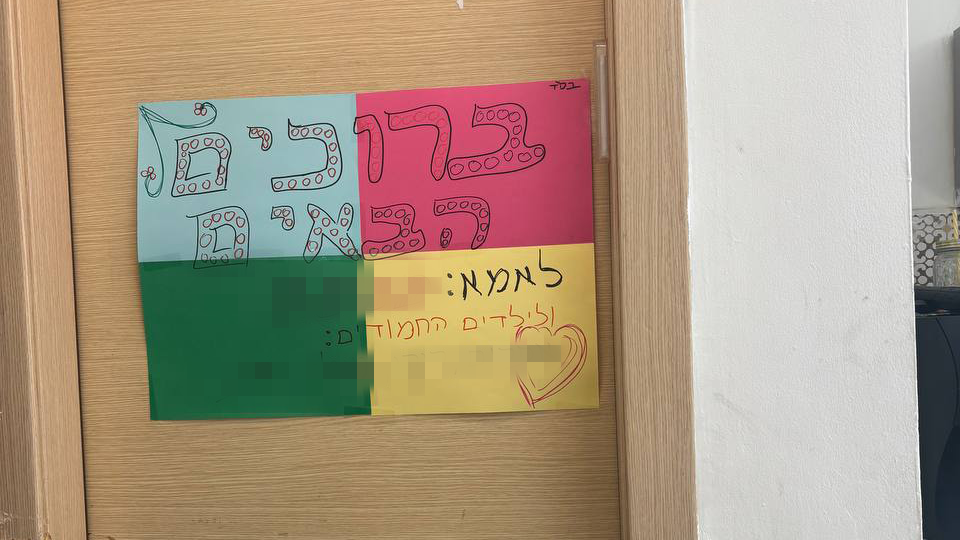 בסד
ברוכים
הבאים
לאמא:
ולילדים החמודים: